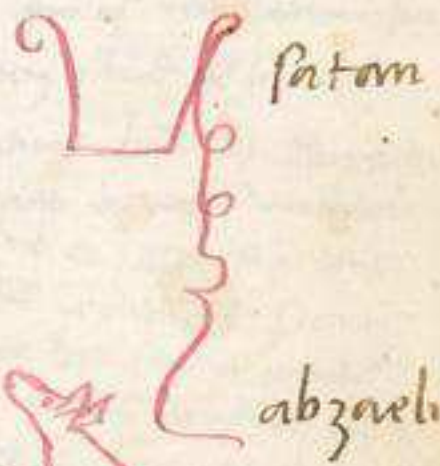 satan
abzaeli